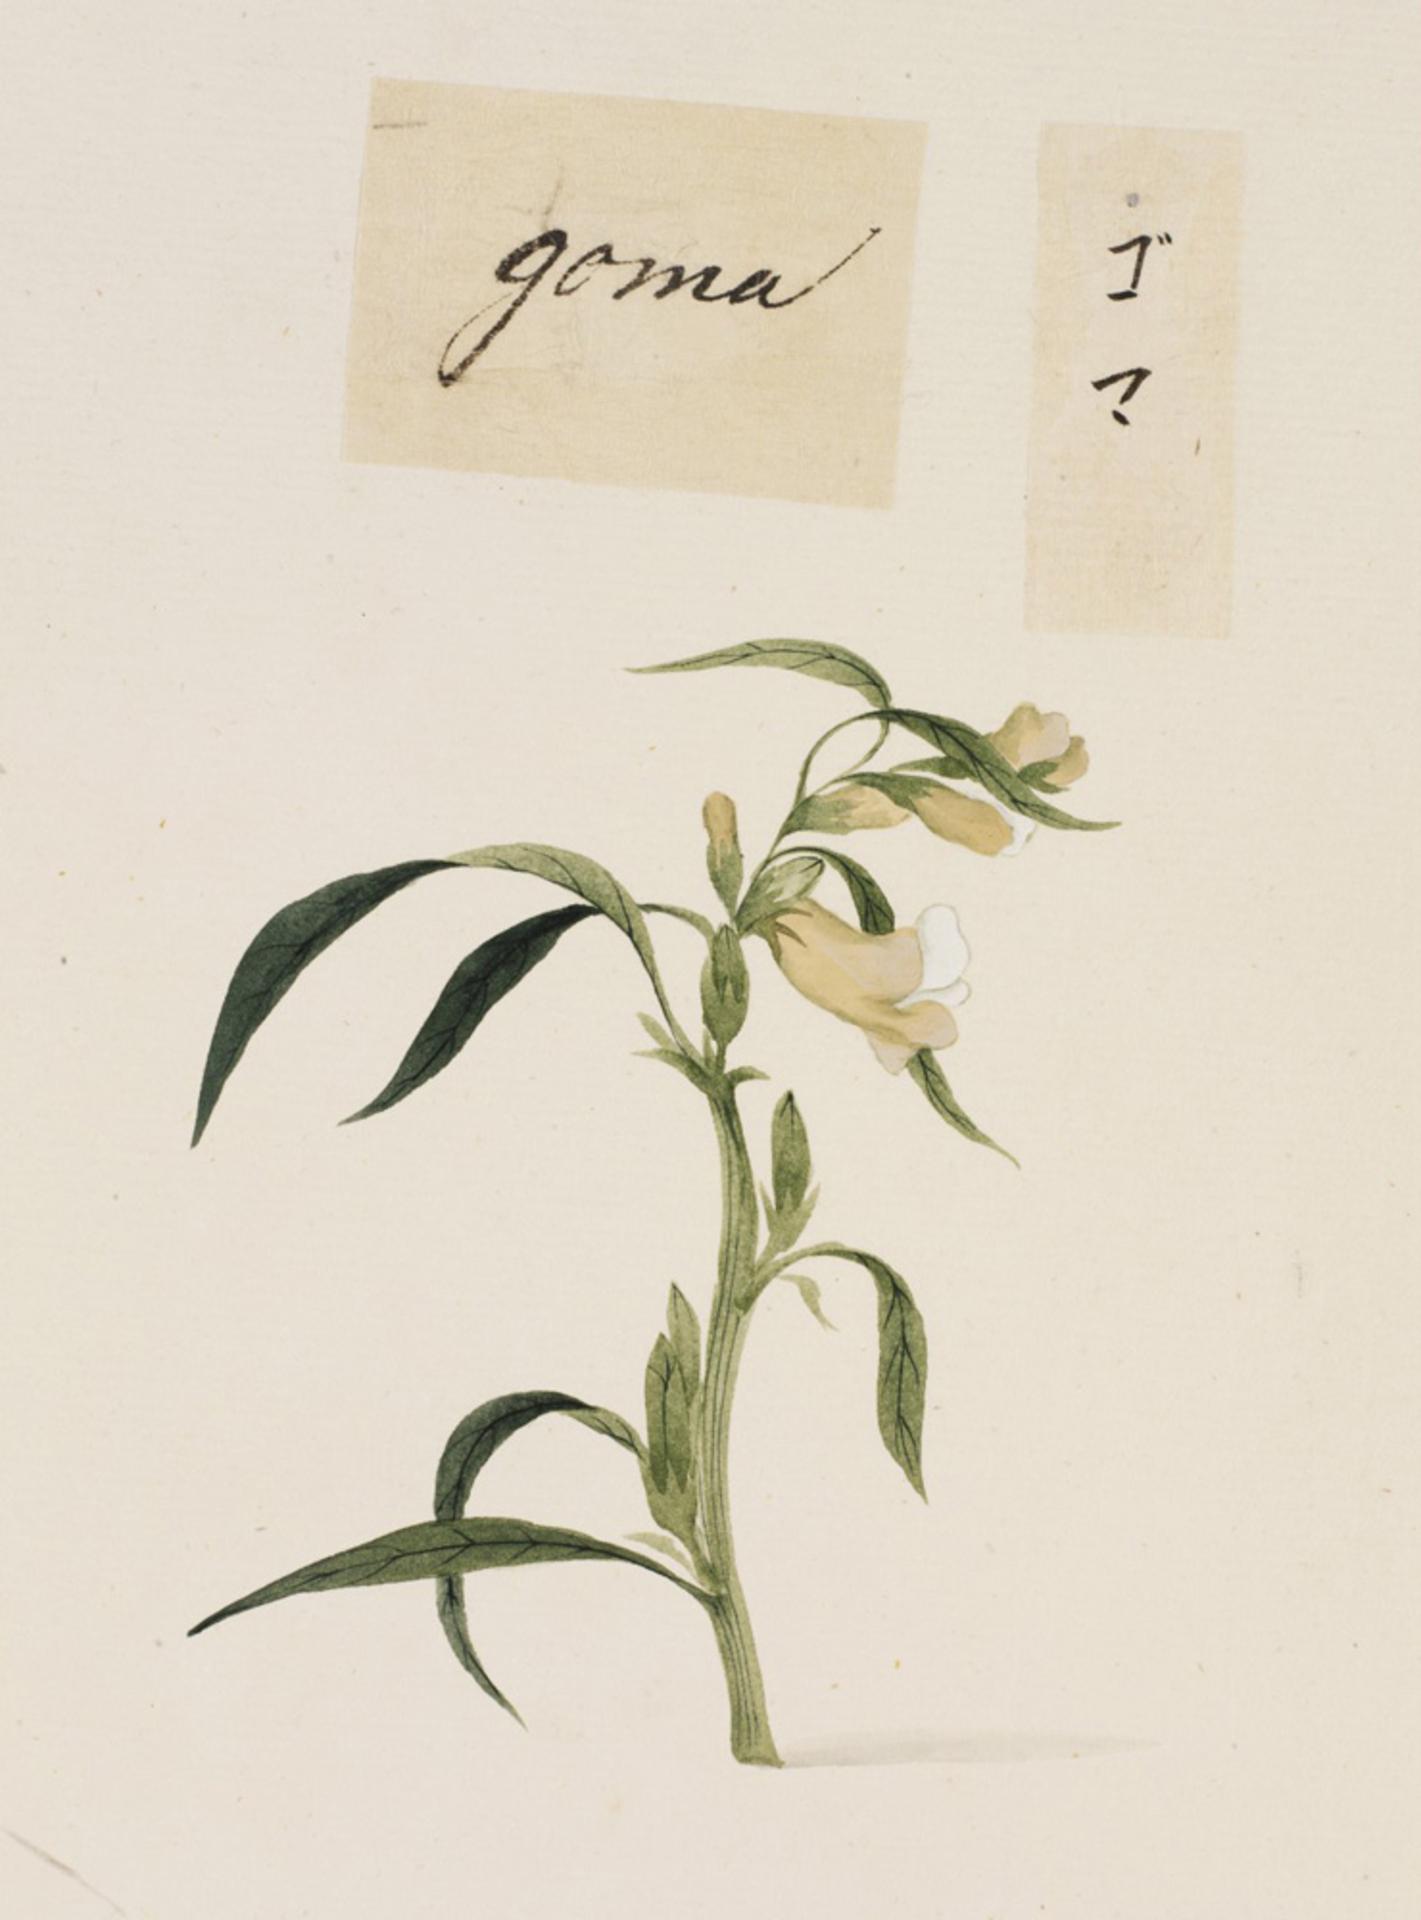 goma
ゴマ